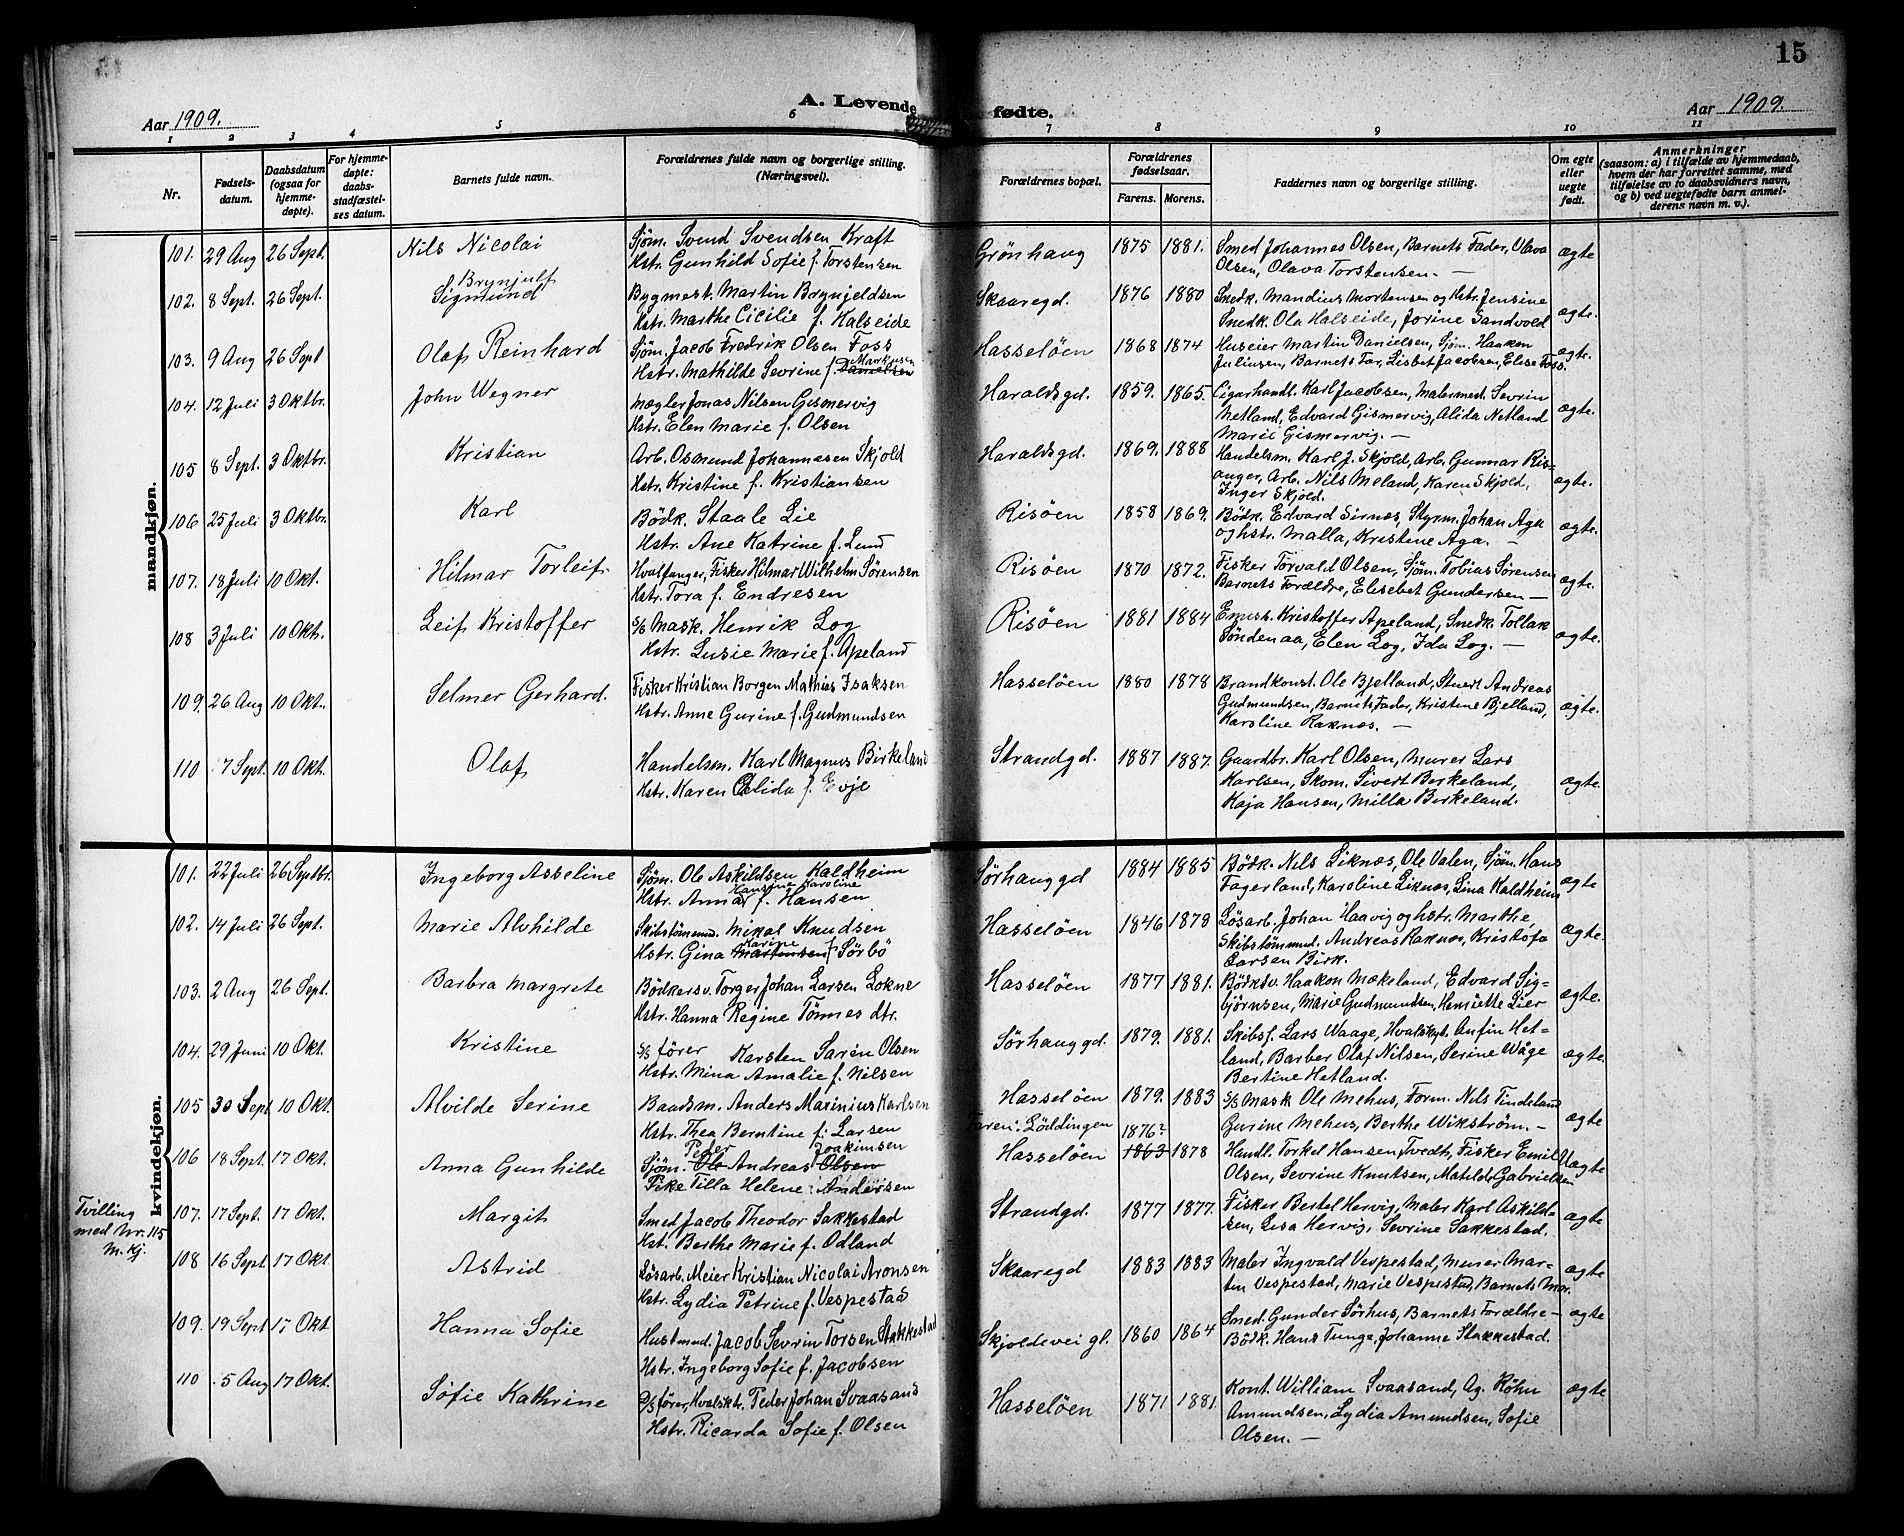 15
Aar 1909.
A. Levende fødte.
Aar 1909.
1 2 3 4 5 6 7 8 9 10 11
Nr.
Fødsels-
datum.
Daabsdatum
(ogsaa for
hjemme-
døpte).
For hjemme-
døpte:
daabs-
stadfæstel-
ses datum.
Barnets fulde navn.
Forældrenes fulde navn og borgerlige stilling.
(Næringsvei).
Forældrenes bopæl.
Forældrenes
fødselsaar.
Farens. Morens.
Faddernes navn og borgerlige stilling.
Om egte
eller
uegte
født.
Anmerkninger
(saasom: a) i tilfælde av hjemmedaab,
hvem der har forrettet samme, med
tilføielse av to daabsvidners navn,
og b) ved uegtefødte barn anmel-
derens navn m. v.).
mandkjøn.
101. 29 Aug 26 Sept. Nils Nicolai
Sjøm. Svend Svendsen Kraft
Hstr. Gunhild Sofie f. Torstensen
Grönhaug 1875 1881.
Smed Johannes Olsen, Barnets Fader, Olava
Olsen, Olava Torstensen. —
ægte
102. 8 Sept. 26 Sept. Sigmund Brynjulf
Bygmest. Martin Brynjeldsen
Hstr. Marthe Cicilie f. Halseide
Skaaregd. 1876 1880
Snedk. Mandius Mortensen og Hstr. Jensine
Snedk. Ola Halseide, Jorine Sandvold
ægte.
103. 9 Aug 26 Sept Olaf Reinhard
Sjøm. Jacob Fredrik Olsen Foss
Hstr. Mathilde Sevrine f. Danielsen Markusen
Hasseløen 1868 1874
Huseier Martin Danielsen, Sjøm. Haakon
Juliusen, Barnets Far, Lisbet Jacobsen, Elise Foss.
ægte.
104. 12 Juli 3 Oktbr. John Wegner
Mægler Jonas Nilsen Gismervig
Hstr. Elen Marie f. Olsen
Haraldsgd. 1859. 1865.
Cigarhandl. Karl Jacobsen, Malermed. Sevrin
Netland, Edvard Gismervig, Alida Netland
Marie Gismervig. —
ægte.
105 8 Sept. 3 Oktbr. Kristian
Arb. Osmund Johannesen Skjold
Hstr. Kristine f. Kristiansen
Haraldsgd. 1869. 1888
Handelsm. Karl J. Skjold, Arb. Gunnar Ris-
anger, Arb. Nils Meland, Karen Skjold,
Inger Skjold.
ægte.
106 25 Juli 3 Oktbr. Karl
Bödk. Staale Lie
Hstr. Ane Katrine f. Lund
Risöen 1858 1869.
Bödk. Edvard Sirnæs, Styrm. Johan Aga
og hstr. Malla, Kristine Aga. —
ægte.
107. 18 Juli 10 Okt. Hilmar Torleif
Hvalfanger, Fisker Hilmar Wilhelm Sørensen
Hstr. Tora f. Endresen
Risöen 1870 1872.
Fisker Torvald Olsen, Sjøm. Tobias Sørensen
Barnets Forældre, Elisebet Gundersen —
ægte.
108 3 Juli 10 Okt. Leif Kristoffer
S/S Mask. Henrik Log
Hstr. Lusie Marie f. Apeland
Risöen 1881 1884
Kristoffer Apeland, Snedk. Tollak
Söndenaa, Elen Log, Ida Log. —
ægte.
109. 26 Aug 10 Okt. Selmer Gerhard.
Fisker Kristian Borgen Mathias Isaksen
Hstr. Anne Gurine f. Gudmundsen
Hasselöen 1880 1878
Brandkonst. Ole Bjelland, Stuert Andreas
Gudmundsen, Barnets Fader, Kristine Bjelland,
Karoline Raknæs. —
ægte.
110 7 Sept. 10 Okt. Olaf
Handelsm. Karl Magnus Birkeland
Hstr. Karen Alida f. Evje
Strandgd. 1887 1887.
Gaardbr. Karl Olsen, Murer Lars
Karlsen, Skom. Sivert Berkeland,
Kaja Hansen, Milla Birkeland.
ægte.
kvindekjøn.
101. 22 Juli 26 Septbr. Ingeborg Asseline
Sjøm. Ole Askildsen Kaldheim
Hstr. Anna Hansine Karoline f. Hansen
Sørhauggd 1884 1885
Bödk. Nils Liknæs, Ole Valen, Sjøm. Hans
Fagerland, Karoline Liknæs, Lina Kaldheim
ægte
102. 14 Juli 26 Sept. Marie Alvhilde
Skibstømmd. Mikal Knudsen
Hstr. Gina Martinsen Karine f. Sörbö
Hasselöen 1846 1878
Løsarb. Johan Haavig og hstr. Marthe,
Skibstømmd. Andreas Raknæs, Kristofa
Larsen Birk.
ægte.
103. 2 Aug 26 Sept. Barbra Margrete
Bödkersv. Torger Johan Larsen Lokne
Hstr. Hanna Regine Tönnes dtr.
Hasselöen 1877 1881.
Bödksv. Haakon Mækeland, Edvard Sig-
björnsen, Marie Gudmundsen, Henriette Lier
ægte.
104. 29 Juni 10 Okt. Kristine
S/S fører Karsten Sarin Olsen
Hstr. Mina Amalie f. Nilsen
Sørhauggd. 1879. 1881.
Skibsf. Lars Waage, Hvalskyt. Anfin Het-
land, Barber Olaf Nilsen, Serine Wåge
Bertine Hetland.
ægte.
105 30 Sept 10 Okt. Alvilde Serine
Baadsm. Anders Marinius Karlsen
Hstr. Thea Berntine f. Larsen
Hasselöen 1879. 1883
S/S Mask Ole Mehus, Form. Nils Tindeland
Gurine Mehus, Berthe Wikström. —
ægte
106 18 Sept. 17 Okt. Anna Gunhilde
Sjøm. Ole Peder Andreas Olsen Joakimsen
Pike Tilla Helene Andersen
Faren: Löddingen
Hasselöen 1863 1876? 1878
Handl. Torkel Hansen Tvedt, Fisker Emil
Olsen, Sevrine Knutsen, Matilde Gabrielsen
Uægte
Tvilling
med Nr. 115
M. Kj.
107. 17 Sept. 17 Okt. Margit
Smed Jacob Theodor Sakkestad
Hst. Berthe Marie f. Odland
Strandgd. 1877 1877.
Fisker Bertel Hervig, Maler Karl Askild-
sen, Lisa Hervig, Sevrine Sakkestad.
ægte
108 16 Sept. 17 Okt. Astrid
Løsarb. Meier Kristian Nicolai Aronsen
Hstr. Lydia Petrine f. Vespestad
Skaaregd 1883 1883
Maler Ingvald Vespestad, Murer Mar-
tin Vespestad, Marie Vespestad, Barnets Mor.
ægte
109. 19 Sept 17 Okt Hanna Sofie
Hustmd. Jacob Sevrin Torsen Stakkestad
Hstr. Ingeborg Sofie f. Jacobsen
Skjoldevei gl. 1860 1864
Smed. Gunder Sörhus, Barnets Forældre —
Bödk. Hans Tunge, Johanne Stakkestad.
ægte
110 5 Aug 17 Okt. Sofie Kathrine
D/S fører, Hvalsk tr. Peder Johan Svaasand
Hstr. Ricarda Sofie f. Olsen
Hasselöen 1871 1881.
Kont. William Svaasand, Ag. Röhn
Amundsen, Lydia Amundsen, Sofie
Olsen. —
ægte